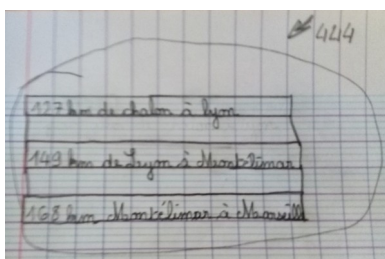 444
127 km de chalon à lyon
149 km de Lyon à Montélimar
168 km Montélimar à Marseill